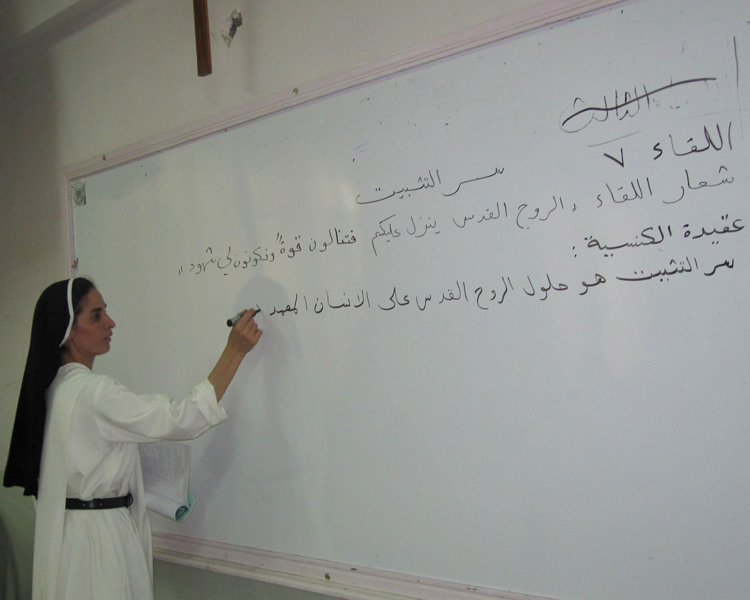 الثالث
اللقاء ٧
سر التثبيت
شعار اللقاء " الروح القدس ينزل عليكم فتنالون قوةً وتكونون لي شهود "
عقيدة الكنسية :
سر التثبيت هو حلول الروح القدس على الانسان المعمد